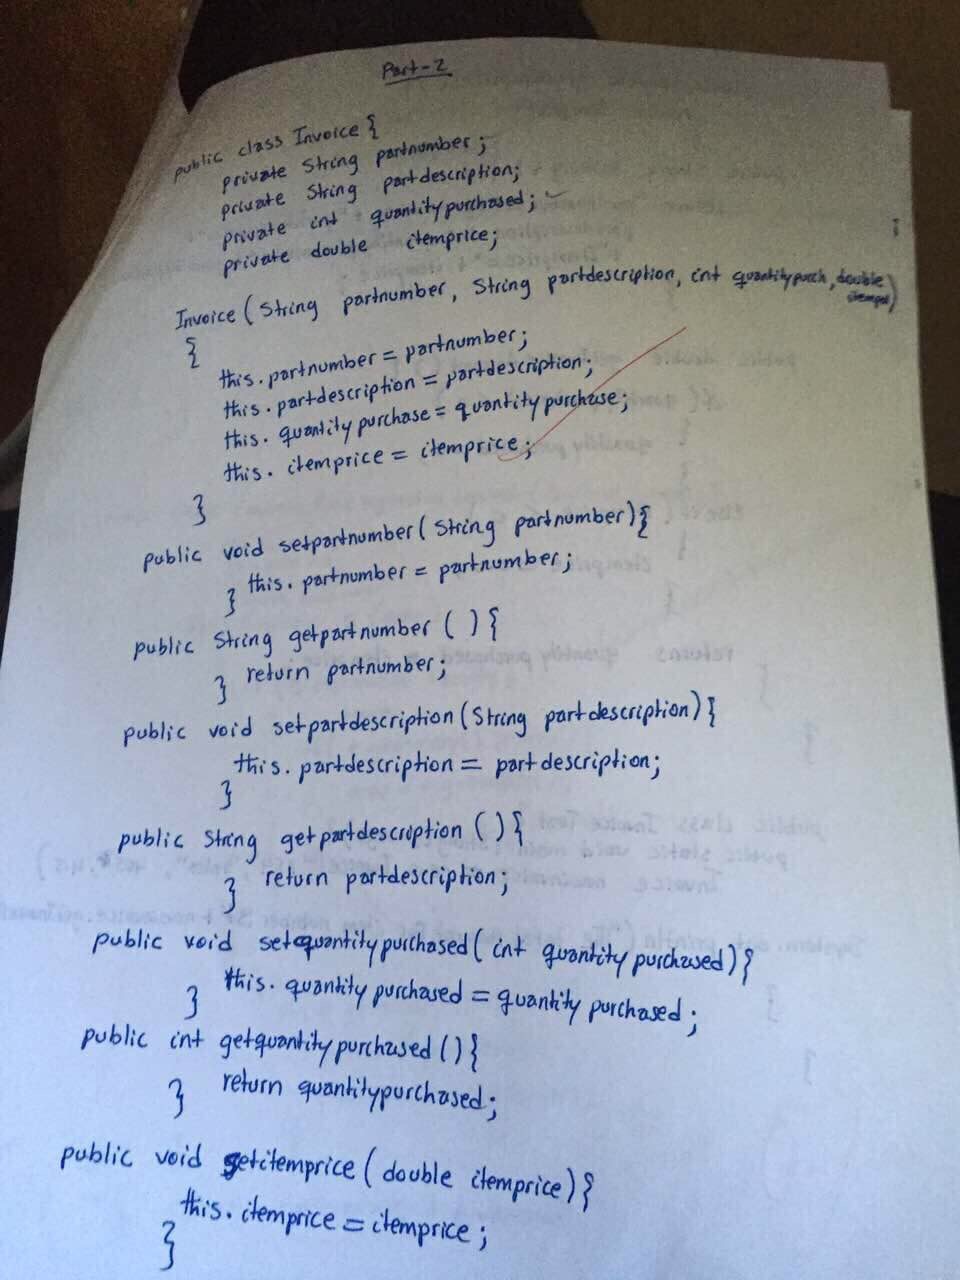 Part-2
public class Invoice {
private String partnumber;
private String partdescription;
private int quantitypurchased;
private double itemprice;
Invoice (String partnumber, String partdescription, int quantitypurch, double
{
this.partnumber = partnumber;
this.partdescription = partdescription;
this.quantitypurchase = quantitypurchase;
this.itemprice = itemprice;
}
public void setpartnumber (String partnumber) {
this.partnumber = partnumber;
}
public String getpartnumber () {
return partnumber;
}
public void setpartdescription (String partdescription) {
this.partdescription = partdescription;
}
public String getpartdescription () {
return partdescription;
}
public void setquantitypurchased (int quantitypurchased) {
this.quantitypurchased = quantitypurchased;
}
public int getquantitypurchased () {
return quantitypurchased;
}
public void setitemprice (double itemprice) {
this.itemprice = itemprice;
}